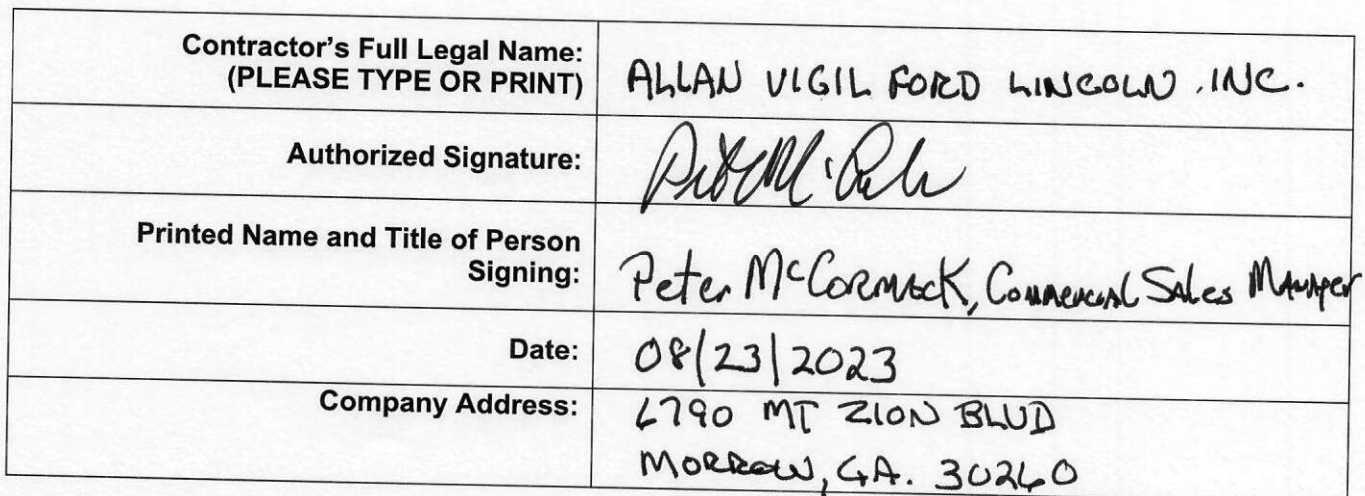 Contractor's Full Legal Name:
(PLEASE TYPE OR PRINT)
ALLAN VIGIL FORD LINCOLN, INC.
Authorized Signature:
Printed Name and Title of Person
Signing:
Peter McCormack, Commercial Sales Manager
Date:
08/23/2023
Company Address:
6790 MT ZION BLVD
MORROW, GA. 30260